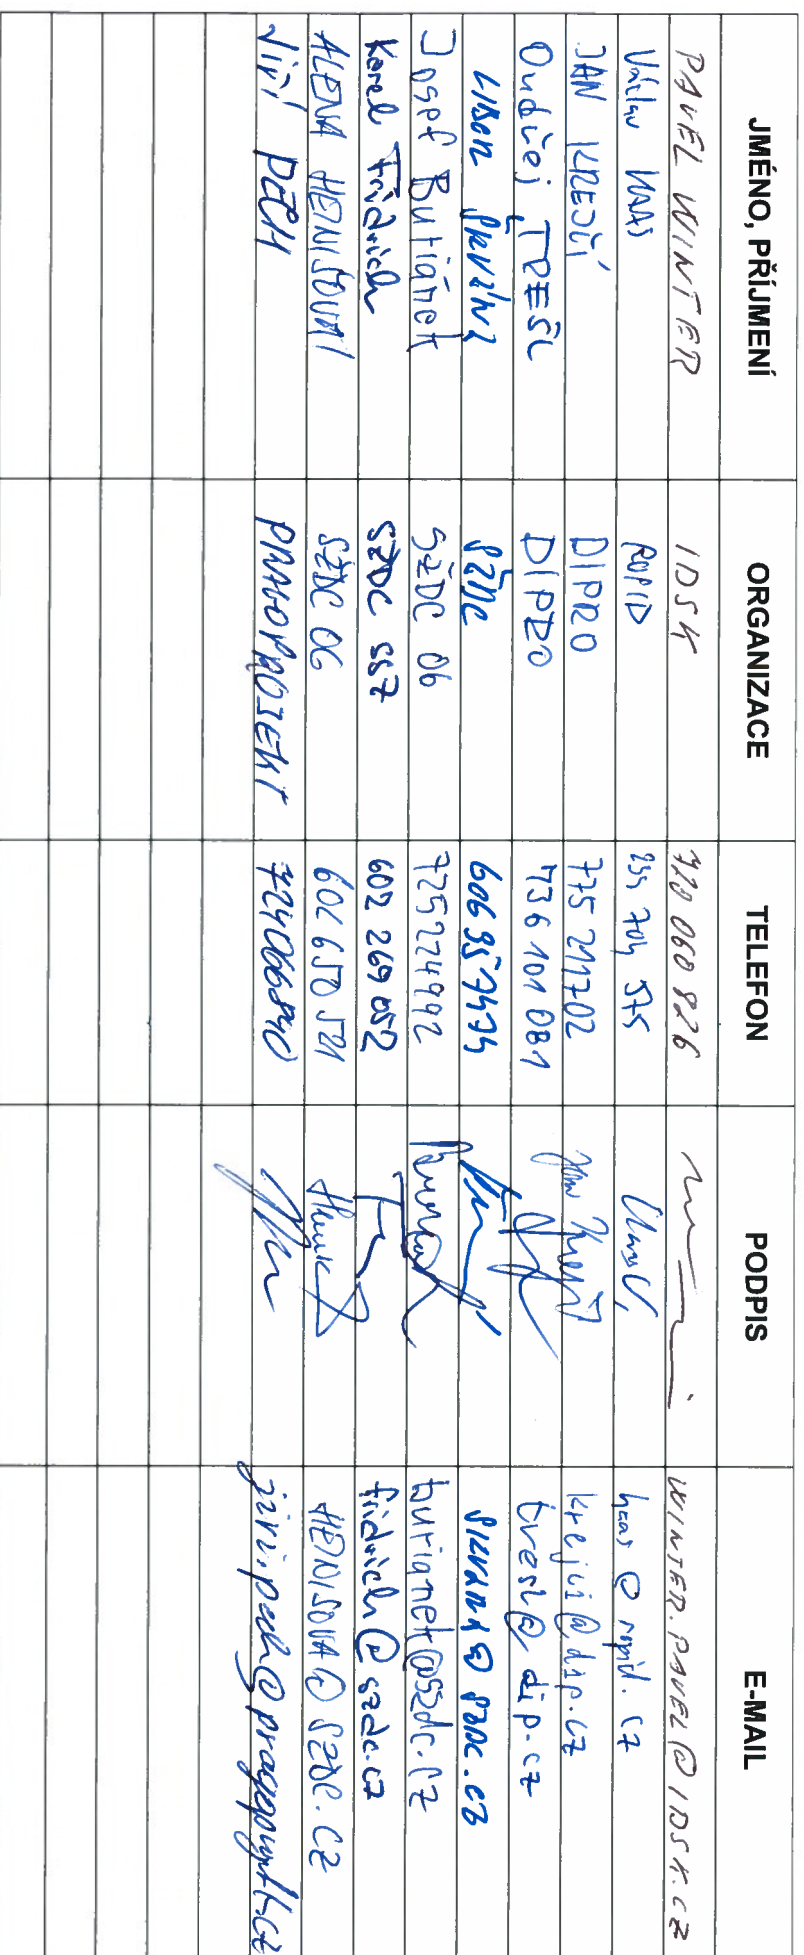 JMÉNO, PŘÍJMENÍ ORGANIZACE TELEFON PODPIS E-MAIL
PAVEL WINTER IDSK 720 060 826 WINTER.PAVEL@IDSK.CZ
Václav HAAS ROPID 234 704 575 haas@ropid.cz
JAN KREJČÍ DIPRO 775 211702 krejci@dip.cz
Ondřej TREŠL DIPRO 736 101 081 tresl@dip.cz
LIBOR SŽDC
Josef Buriánek SŽDC O6 725224992 burianek@szdc.cz
Karel Fridrich SŽDC SS7 602 269 052 fridrich@szdc.cz
ALENA HENISOVÁ SŽDC O6 602 650 521 HENISOVA@SZDC.CZ
Jiří PECH PRAGOPROJEKT 724066840 jiri.pech@pragoprojekt.cz